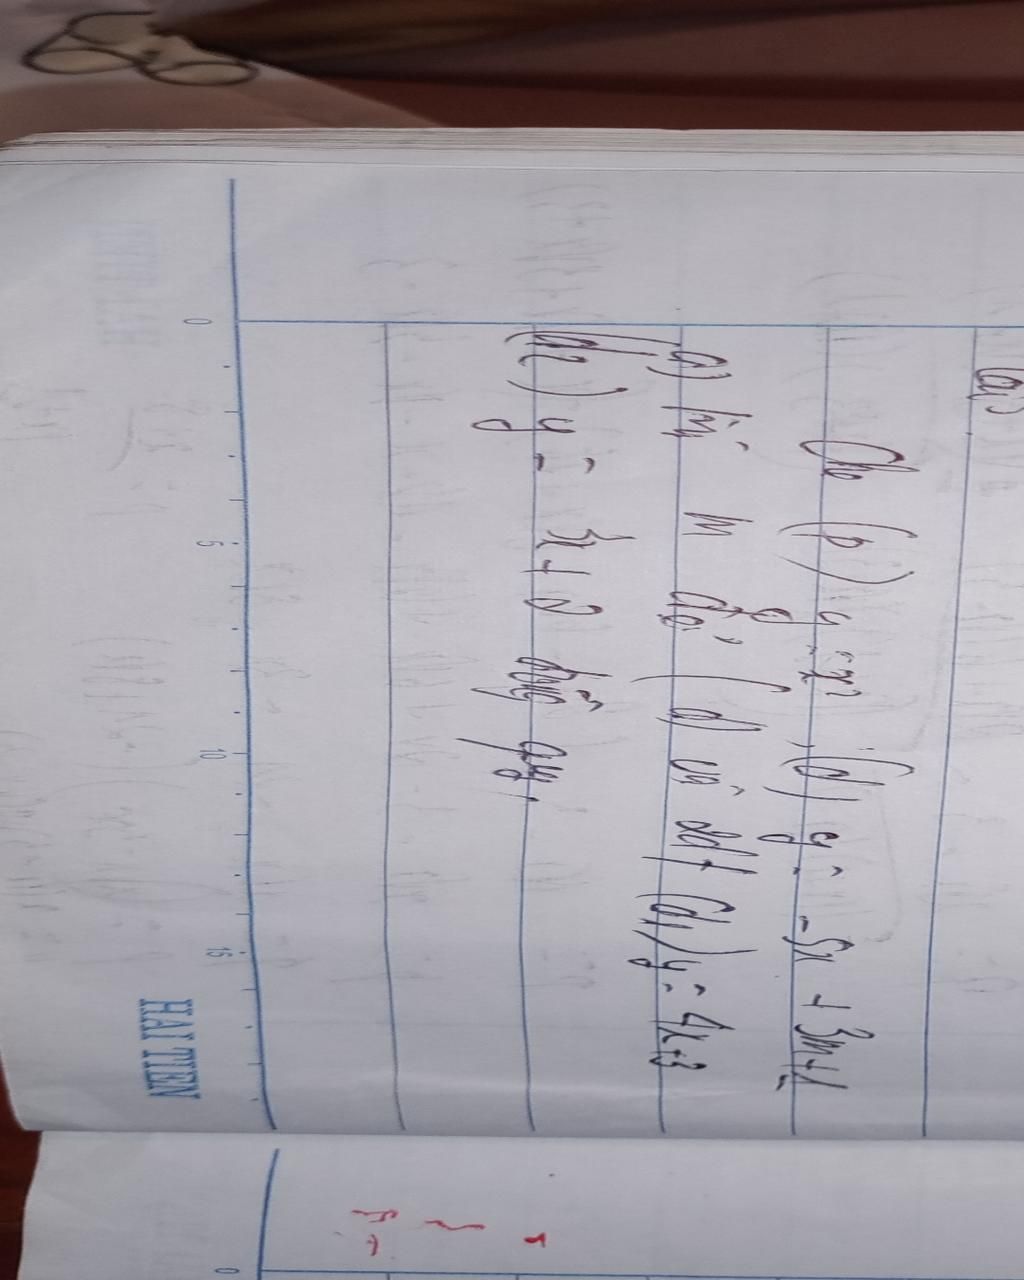 Cho (P) y = x², (d) y = -5x + 3m+2
a) Tìm m để (d và 2đt (d1) y = 4x+3
(d2) y = 3x+2 đồng quy.
0 5 10 15 HAI TIEN
0